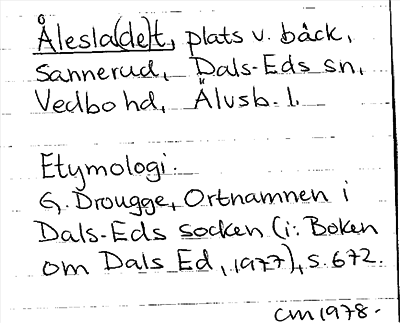 Ålesla(de)t, plats v. bäck,
Sannerud, Dals-Eds sn,
Vedbo hd, Älvsb. l.
Etymologi:
G. Drougge, Ortnamnen i
Dals-Eds socken (i: Boken
om Dals Ed, 1977), s. 672.
CM 1978.